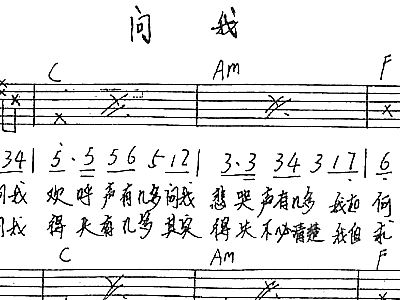 问 我
C Am F
34 | 5·5 56 5 12 | 3·3 34 3 17 | 6
问我 欢呼声有几多问我 悲哭声有几多 我如何
问我 得失有几多其实 得失不必清楚 我但求
C Am F